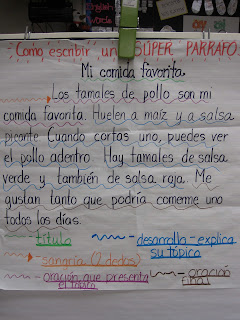 Como escribir un SÚPER PARRAFO
Mi comida favorita
Los tamales de pollo son mi
comida favorita. Huelen a maíz y a salsa
picante Cuando cortas uno, puedes ver
el pollo adentro. Hay tamales de salsa
verde y también de salsa roja. Me
gustan tanto que podría comerme uno
todos los días.
título
desarrollo - explica
su tópico
sangría (2 dedos)
oración que presenta
el tópico
oración
final